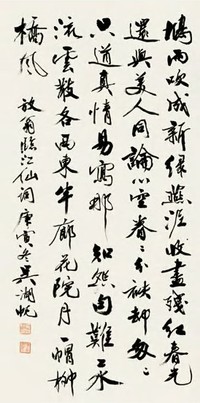 鳩雨吹成新綠燕泥收盡殘紅春光
還與美人同論心空眷々分袂却匆々
只道真情易寫那知怨句難工水
流雲散各西東半廊花院月一帽柳
橋風
放翁臨江仙詞庚寅冬吳湖帆